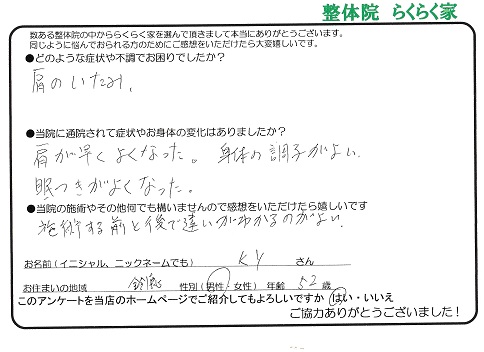 整体院 らくらく家
数ある整体院の中かららくらく家を選んで頂きまして本当にありがとうございます。
同じように悩んでおられる方のためにご感想をいただけたら大変嬉しいです。
●どのような症状や不調でお困りでしたか？
肩のいたみ。
●当院に通院されて症状やお身体の変化はありましたか？
肩が早くよくなった。身体の調子がよい。
眠つきがよくなった。
●当院の施術やその他何でも構いませんので感想をいただけたら嬉しいです
施術する前と後で違いがわかるのがよい。
お名前(イニシャル、ニックネームでも) KY さん
お住まいの地域 性別(男性・女性) 年齢 52 歳
このアンケートを当店のホームページでご紹介してもよろしいですか はい・いいえ
ご協力ありがとうございました！